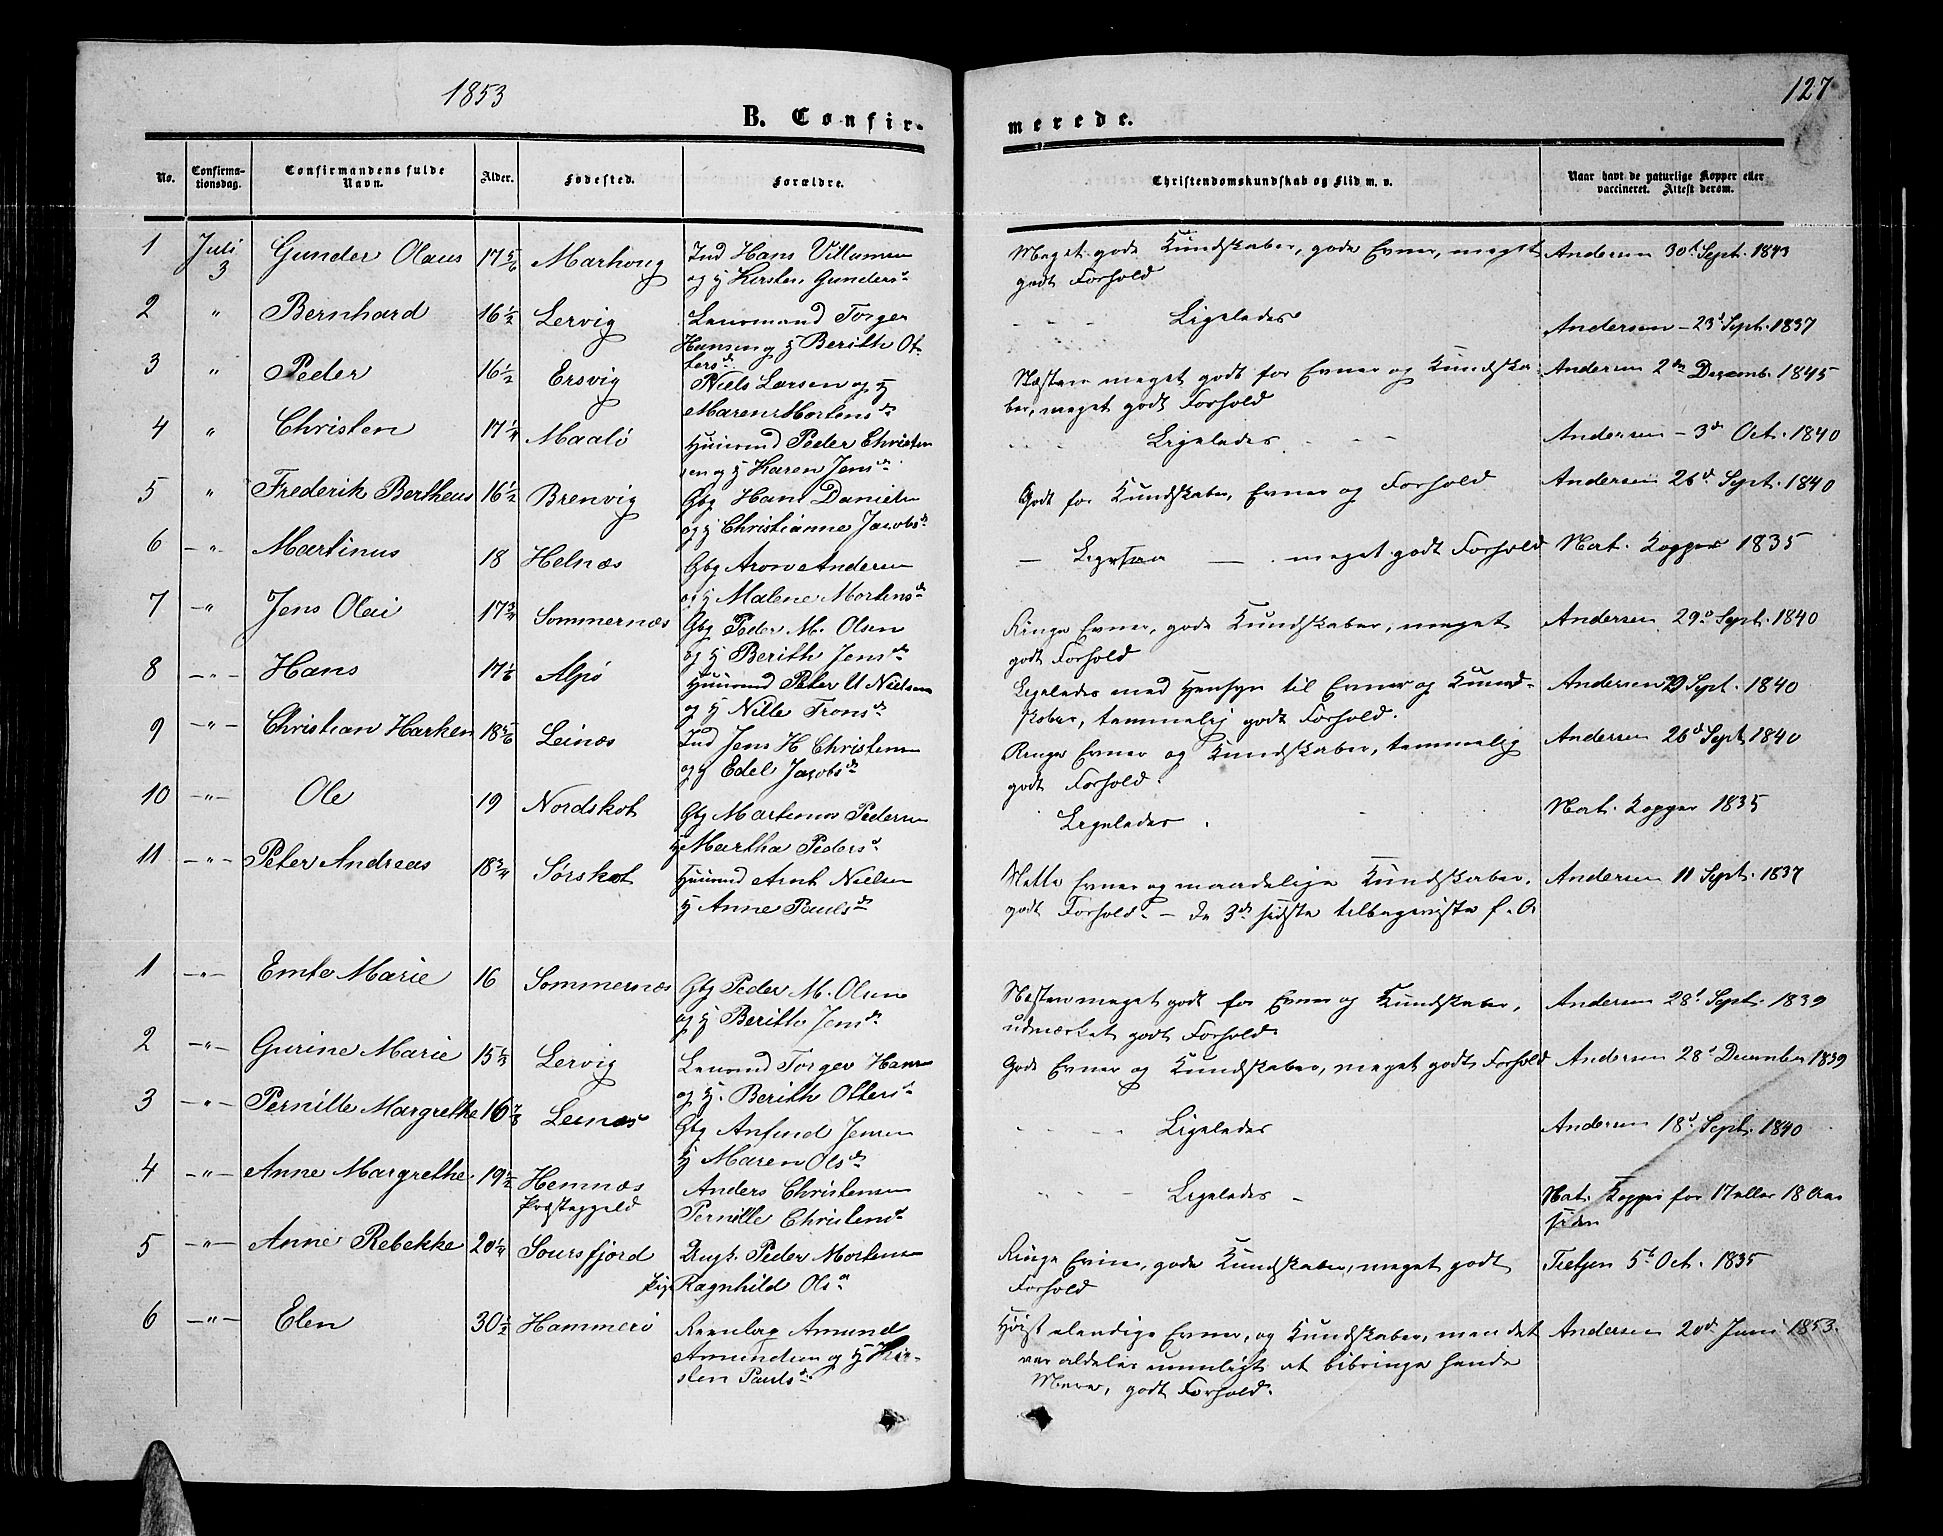 1853
127
B. Confir-
merede.
No.
Confirma-
tionsdag.
Confirmandens fulde
Navn.
Alder.
Fødested.
Forældre.
Christendomskundskab og Flid m. v.
Naar havt de naturlige Kopper eller
vaccineret. Attest derom.
1 Juli 3 Gunder Olaus 17 5/6 Marhoug Ind Hans Villumsen
og H Kirsten Gundersd.
Meget gode Kundskaber, gode Evner, meget
godt Forhold
Andersen 30t Sept. 1843
2 " Bernhard 16 1/2 Lervig Lensmand Torger
Hansen og H Berith Ot-
tersd.
- - Ligeledes
Andersen - 23d Sept. 1837
3 " Peder 16 1/2 Ersvig Niels Larsen og H
Maren Mortensd.
Næsten meget godt for Evner og Kundska-
ber, meget godt Forhold
Andersen 2den Decemb. 1845
4 " Christen 17 1/4 Maalö Huusmd Peder Christen
sen og H Karen Jensd.
- - Ligeledes - -
Andersen - 3d Oct. 1840
5 " Frederik Bertheus 16 1/2 Brenvig Gbg Hans Danielsen
og H Christianne Jacobsd.
Godt for Kundskaber, Evner og Forhold
Andersen 26d Sept. 1840
6 - " - Martinus 18 Helnæs Gbg Aron Andersen
og H Malene Mortensd.
- Ligesaa - . meget godt Forhold
Nat. Kopper 1835
7 - " Jens Olai 17 3/4 Sommernæs Gbg Peder M. Olsen
og H Berith Jensd.
Ringe Evner, gode Kundskaber, meget
godt Forhold
Andersen 29d Sept. 1840
8 - " - Hans 17 1/6 Alpö Huusmd Peter U Nielsen
og H Nille Tronsd.
Ligeledes med Hensyn til Evner og Kund-
skaber, temmelig godt Forhold.
Andersen 29 Sept. 1840
9 - " - Christian Harken 18 5/6 Leinæs Ind Jens H Christensen
og H Edel Jacobsd.
Ringe Evner og Kundskaber, temmelig
godt Forhold.
Andersen 26d Sept 1840
10 - " - Ole 19 Nordskot Gbg Martinus Pedersen
H Martha Pedersd.
Ligeledes .
Nat. Kopper 1835
11 - " - Peter Andreas 18 3/4 Sørskot Huusmd Arnt Nielsen
H Anne Paulsd.
Nette Evner og maadelige Kundskaber,
godt Forhold. - De 3de sidste tilbageviste f. A.
Andersen 11 Sept. 1837
1 - " - Emte Marie 16 Sommernæs Gbg Peder M. Olsen
og H Berith Jensd.
Næsten meget godt for Evner og Kundskaber,
udmærket godt Forhold
Andersen 28t Sept. 1839
2 - " - Gurine Marie 15 1/3 Lervig Lensmd Torger Hansen
og H. Berith Ottersd.
Gode Evner og Kundskaber, meget godt Forhold
Andersen 28d December 1839
3 - " - Pernille Margrethe 16 Leinæs Gbg Anfind Jensen
H Maren Olsd.
- - Ligeledes
Andersen 18d Sept. 1840
4 - " - Anne Margrethe 19 1/2 Hemnæs
Præstegjeld Anders Christensen
Pernille Christensd.
- - Ligeledes -
Nat. Kopper for 17 eller 18 Aar
siden
5 - " - Anne Rebekke 20 1/4 Soursfjord Ungk. Peder Mortensen
Pige Ragnhild Olsd.
Ringe Evner, gode Kundskaber, meget godt
Forhold
Tietjen 5t Oct. 1835
6 - " - Elen 30 1/2 Hammerö Amund
Amundsen og H Kir-
sten Paulsd.
Høist elendige Evner, og Kundskaber, men det
var aldeles umuligt at bibringe hende
Mere, godt Forhold.
Andersen 20d Juni 1853.